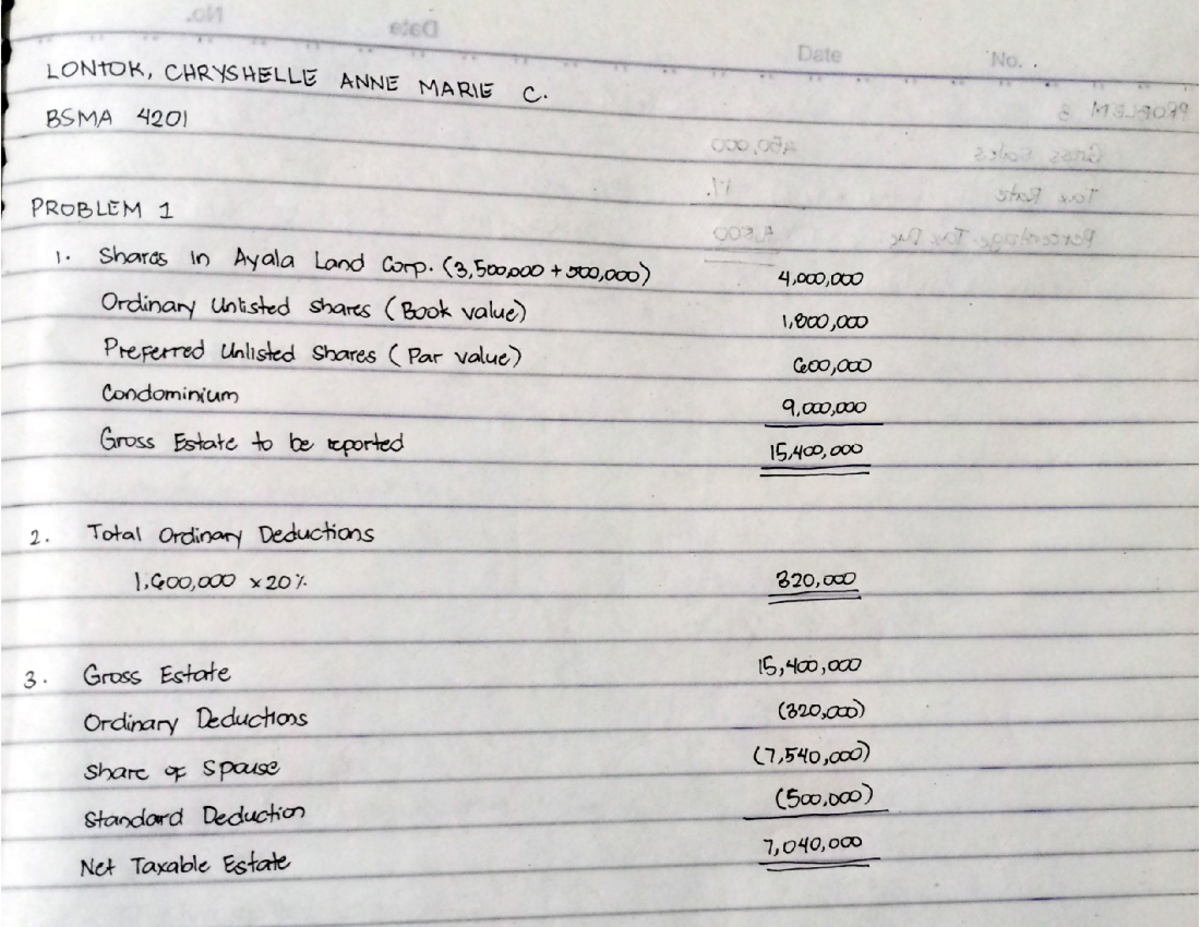 No.
Date
Date No.
LONTOK, CHRYSHELLE ANNE MARIE C.
BSMA 4201
PROBLEM 3
Gross Sales 450,000
Tax Rate 1%
Percentage Tax Due 4,500
PROBLEM 1
1. Shares in Ayala Land Corp. (3,500,000 + 500,000) 4,000,000
Ordinary Unlisted shares (Book value) 1,800,000
Preferred Unlisted Shares (Par value) 600,000
Condominium 9,000,000
Gross Estate to be reported 15,400,000
2. Total Ordinary Deductions
1,600,000 x 20% 320,000
3. Gross Estate 15,400,000
Ordinary Deductions (320,000)
Share of Spouse (7,540,000)
Standard Deduction (500,000)
Net Taxable Estate 7,040,000